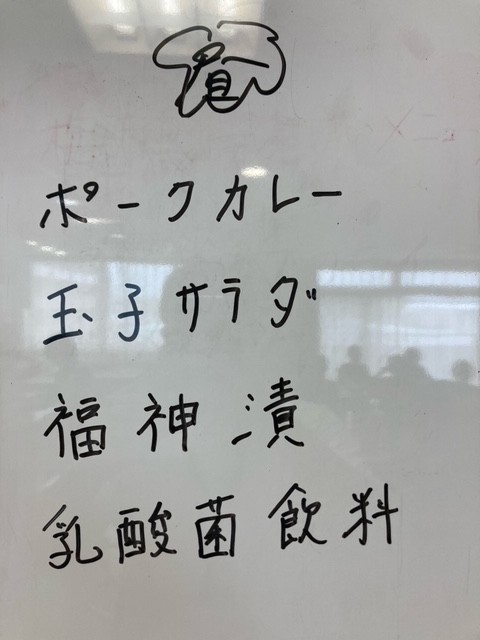 ポークカレー
玉子サラダ
福神漬
乳酸菌飲料